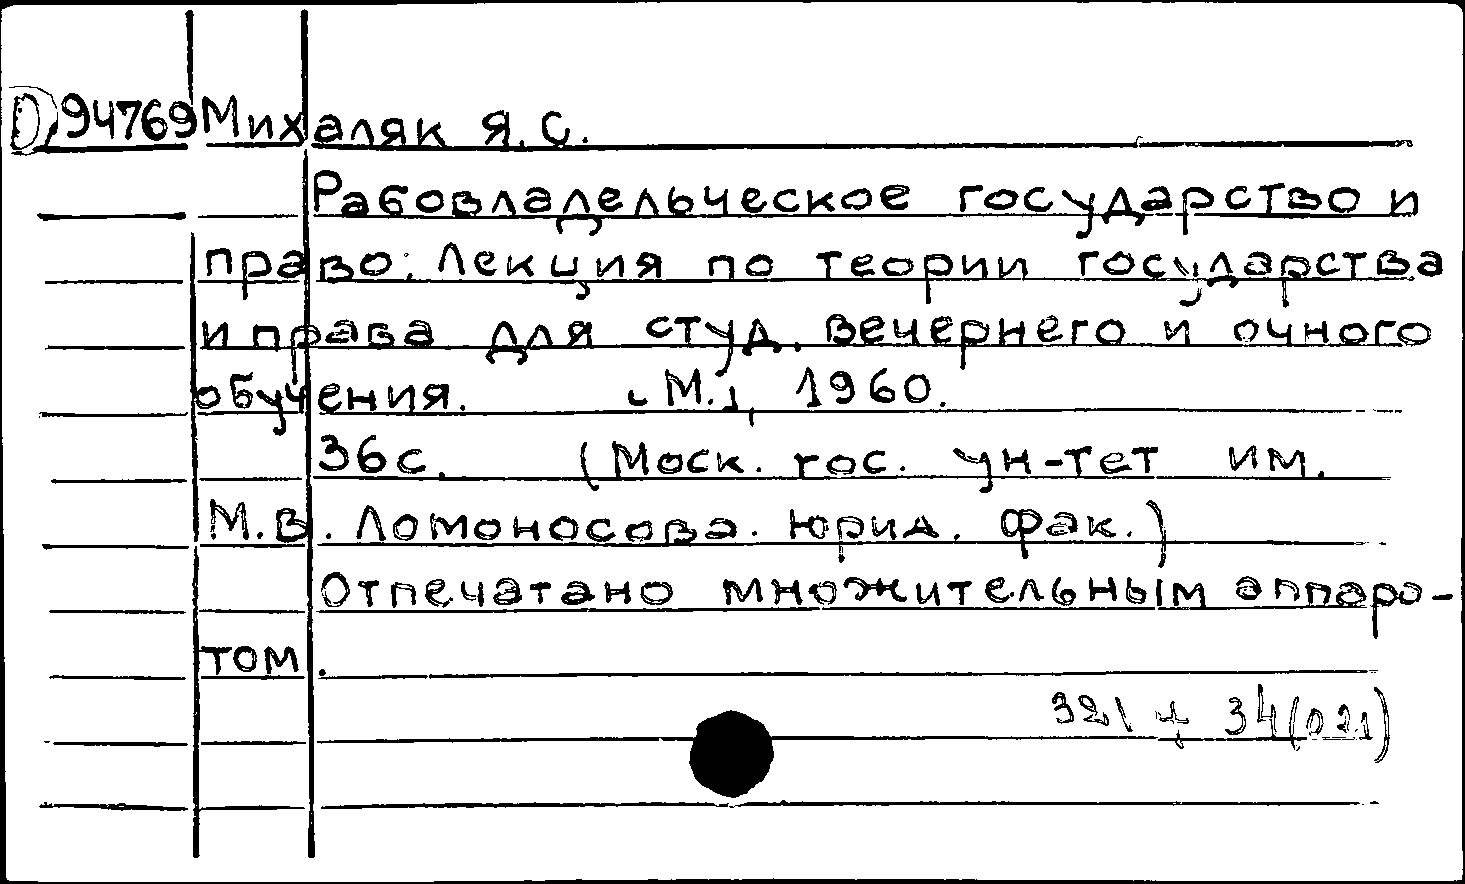 D, 94769 Михаляк Я.С.
Рабовладельческое государство и
право. Лекция по теории государства
и права для студ. вечернего и очного
обучения. М., 1960.
36с. (Моск. гос. ун-тет им.
М.В. Ломоносова. Юрид. фак.)
Отпечатано множительным аппара-
том.
321 + 34(021)